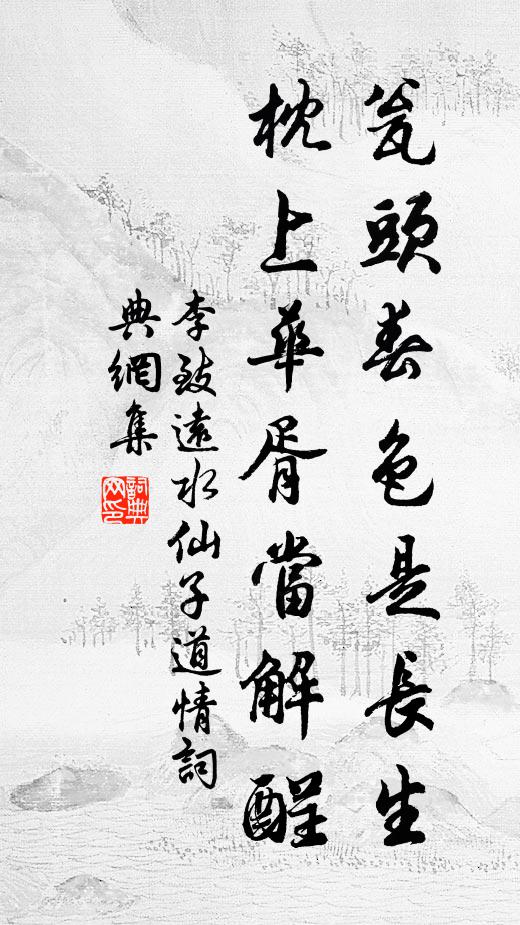 瓮頭春色是長生
枕上華胥當解酲
李致遠水仙子道情詞
典網集
詞典
网印